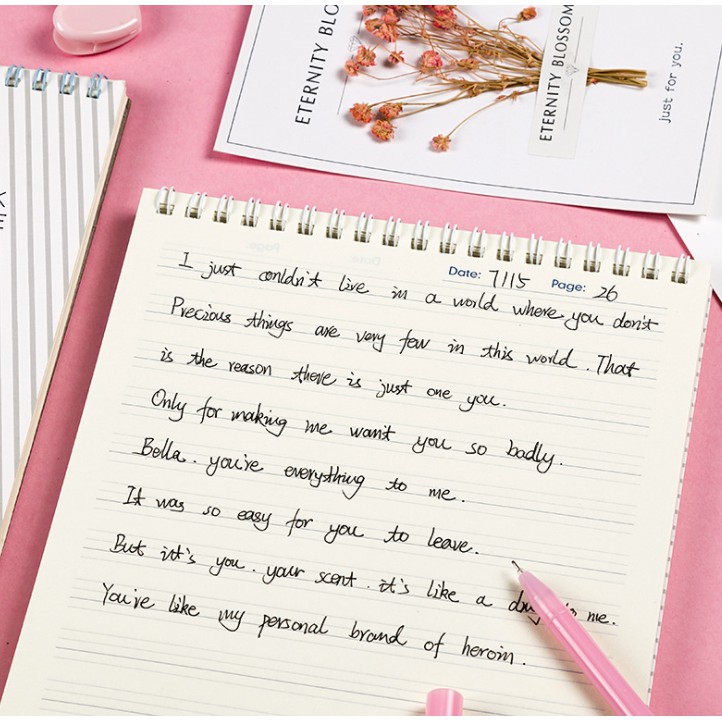 ETERNITY BLO
ETERNITY BLOSSOM
just for you.
Date: 7/15 Page: 26
I just couldn't live in a world where you don't
Precious things are very few in this world. That
is the reason there is just one you.
Only for making me want you so badly.
Bella. you're everything to me.
It was so easy for you to leave.
But it's you. your scent. it's like a drug in me.
You're like my personal brand of heroin.